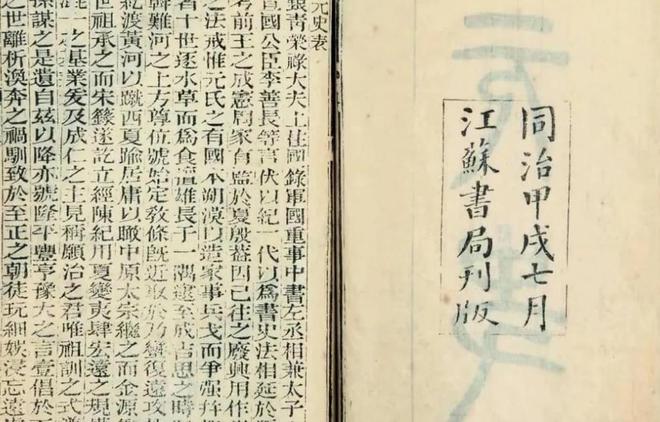 同治甲戌七月
江蘇書局刊版
元史表
銀青榮祿大夫上柱國錄軍國重事中書左丞相兼太子
宣國公臣李善長等言伏以紀一代以為書史法相延於
考前王之成憲周家有監於夏殷葢因已往之廢興用作
之法戒惟元氏之有國本朔漠以造家事兵戈而爭强并
者十世逐水草而為食擅雄長于一隅逮至成吉思之時
斡難河之上方尊位號始定敎條旣近取於乃蠻復遠攻
紇渡黃河以蹴西夏踰居庸以瞰中原太宗繼之而金源
世祖承之而宋籙遂訖立經陳紀用夏變夷肆宏遠之規
一之基業爰及成仁之主見稱願治之君唯祖訓之式
孫謀之是遺自茲以降亦號隆平豐亨豫大之言壹倡於
之世離析渙奔之禍馴致於至正之朝徒玩細娛浸忘遠